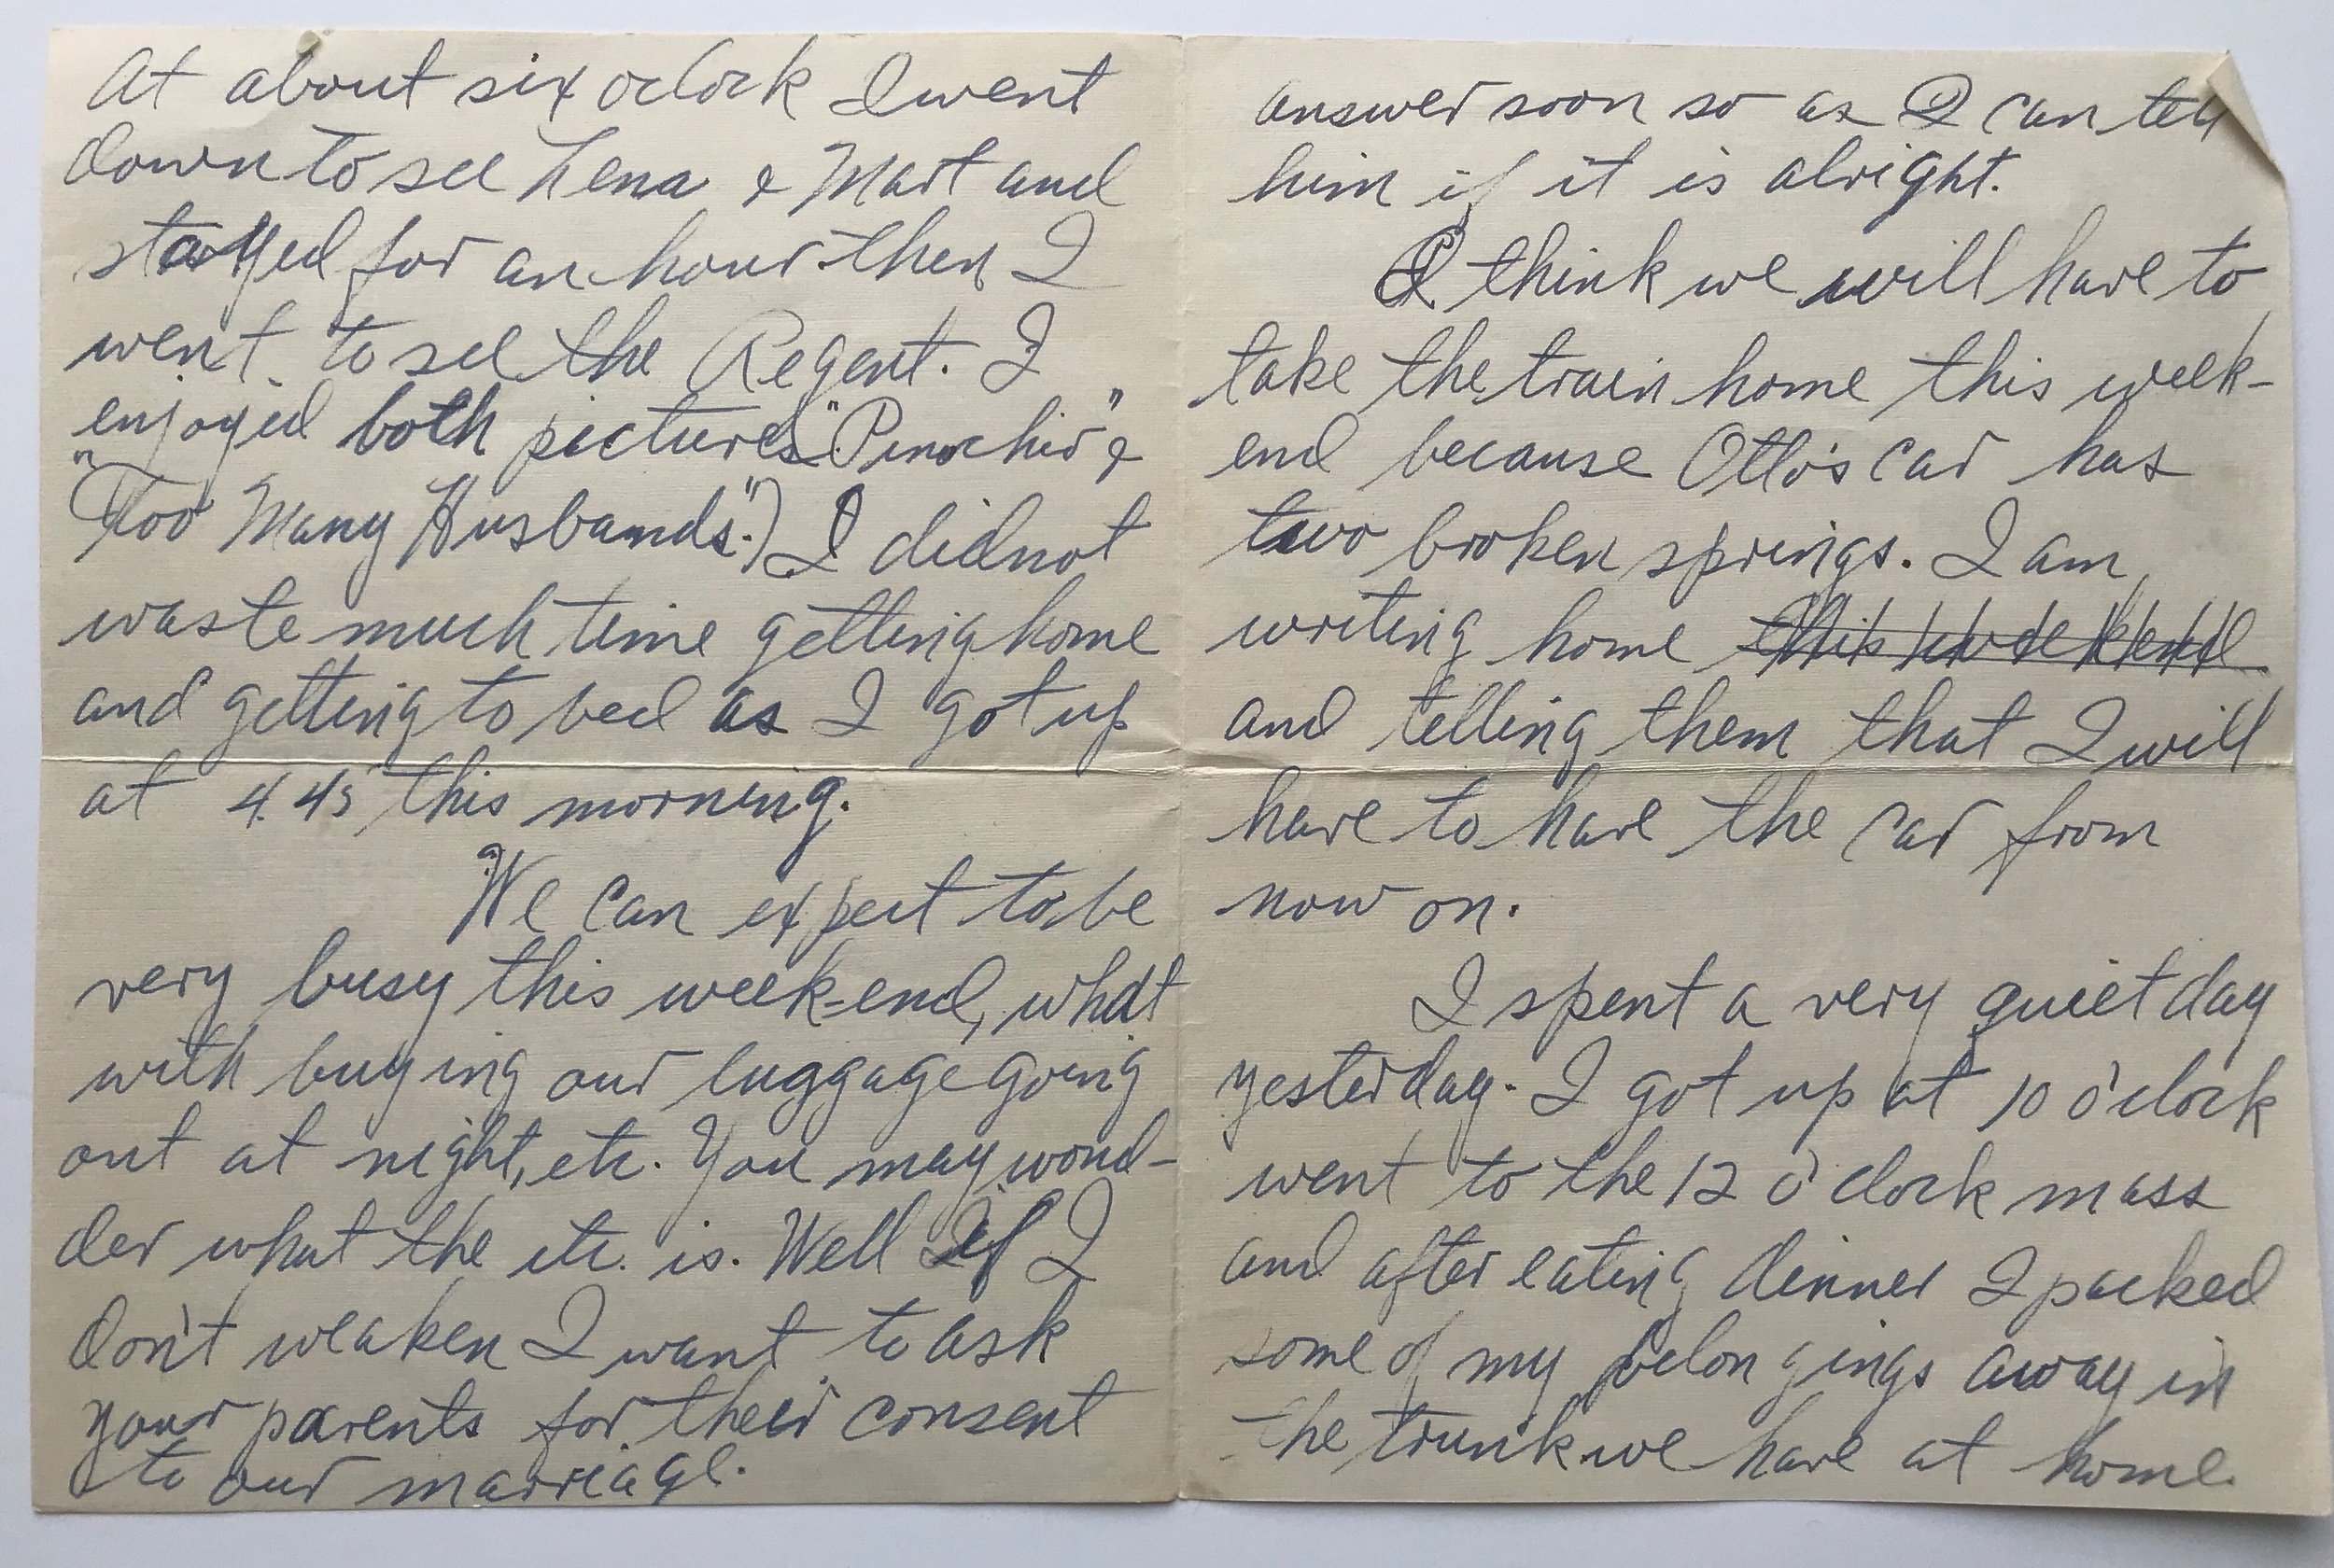 At about six oclock I went
down to see Lena & Mart and
stayed for an hour then I
went to see the Regent. I
enjoyed both pictures "Pinochio" &
"Too Many Husbands".) I didnot
waste much time getting home
and getting to bed as I got up
at 4.45 this morning.
We can expect to be
very busy this week-end, what
with buying our luggage going
out at night, etc. You may wond-
der what the etc. is. Well If I
don't weaken I want to ask
your parents for their consent
to our marriage.
answer soon so as I can tell
him if it is alright.
I think we will have to
take the train home this week-
end because Otto's car has
two broken springs. I am
writing home this week end
and telling them that I will
have to have the car from
now on.
I spent a very quiet day
yesterday. I got up at 10 o'clock
went to the 12 o'clock mass
and after eating dinner I packed
some of my belongings away in
the trunk we have at home.